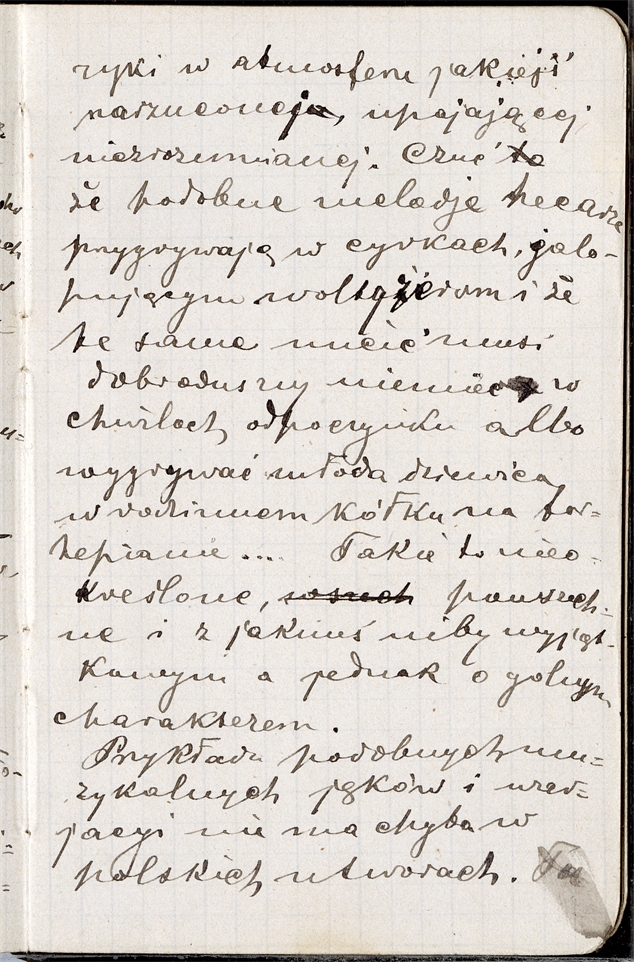 ryki w atmosferu jakiejś
narzuconej, upajającej
niezrozumianej. Czuć to
że podobne melodje
przygrywają w cyrkach, galo-
pującym woltyżerom i że
te same nucić musi
dobroduszny niemiec w
chwilach odpoczynku albo
wygrywać młoda dziewica
w rodzinnem kółku na for=
tepianie .... Takie to nieo-
kreślone, powszech-
ne i z jakimś niby wyjąt-
kowym a jednak ogólnym
charakterem.
Przykładu podobnych mu=
zykalnych jęków i
nie ma chyba w
polskich utworach.